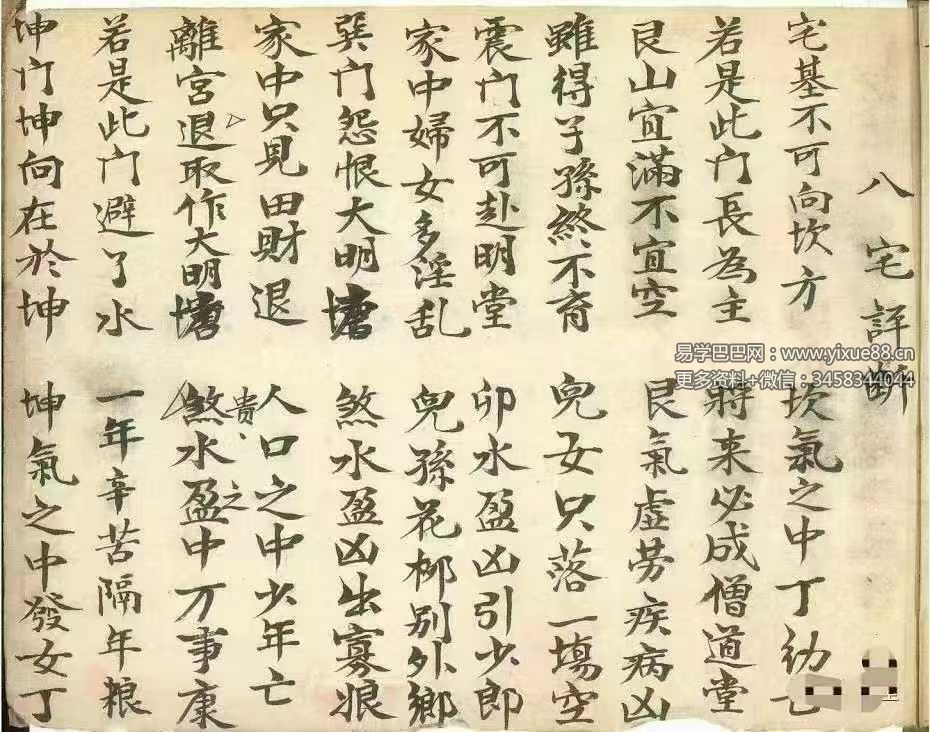 八宅評断
宅基不可向坎方 坎氣之中丁幼亡
若是此门長為主 將来必成僧道堂
艮山宜滿不宜空 艮氣虚劳疾病凶
雖得子孫終不育 兒女只落一塲空
震门不可赴明堂 卯水盈凶引少郎
家中婦女多淫乱 兒孫花柳别外鄉
巽门怨恨大明塘 煞水盈凶出寡娘
家中只見田財退 人口之中少年亡
貴之
離宮退取作大明塘 煞水盈中万事康
若是此门避了水 一年辛苦隔年粮
坤门坤向在於坤 坤氣之中發女丁
易学巴巴网：www.yixue88.cn
更多资料+微信：3458344044